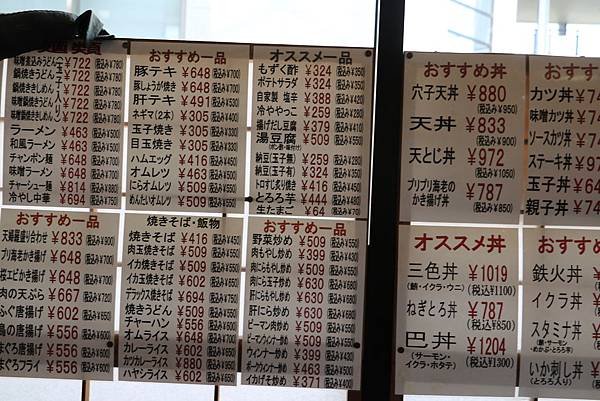 味噌煮込みうどん ¥722 (税込み¥780)
味噌焼きうどん ¥722 (税込み¥780)
鍋焼きうどん ¥722 (税込み¥780)
鍋焼きしめん ¥722 (税込み¥780)
ラーメン ¥463 (税込み¥500)
和風ラーメン ¥463 (税込み¥500)
チャンポン麺 ¥648 (税込み¥700)
味噌ラーメン ¥648 (税込み¥700)
チャーシュー麺 ¥814 (税込み¥880)
冷やし中華 ¥694 (税込み¥750)
おすすめ一品
豚テキ ¥648 (税込み¥700)
豚しょうが焼き ¥648 (税込み¥700)
肝テキ ¥491 (税込み¥530)
ネギマ(2本) ¥305 (税込み¥330)
玉子焼き ¥305 (税込み¥330)
目玉焼き ¥305 (税込み¥330)
ハムエッグ ¥416 (税込み¥450)
オムレツ ¥463 (税込み¥500)
にらオムレツ ¥509 (税込み¥550)
めんたいオムレツ ¥509 (税込み¥550)
オススメ一品
もずく酢 ¥324 (税込み¥350)
ポテトサラダ ¥324 (税込み¥350)
自家製 塩辛 ¥388 (税込み¥420)
冷ややっこ ¥259 (税込み¥280)
揚げだし豆腐 ¥379 (税込み¥410)
湯豆腐 ¥509 (税込み¥550)
(ポン酢・味噌付)
納豆(玉子無) ¥259 (税込み¥280)
納豆(玉子有) ¥324 (税込み¥350)
トロすじ炙り焼き ¥416 (税込み¥450)
とろろ芋 ¥444 (税込み¥480)
生たまご ¥64 (税込み¥70)
おすすめ一品
天婦羅盛り合わせ ¥833 (税込み¥900)
プリ海老かき揚げ ¥648 (税込み¥700)
桜エビかき揚げ ¥648 (税込み¥700)
肉の天ぷら ¥667 (税込み¥720)
ふぐ唐揚げ ¥602 (税込み¥650)
鳥の唐揚げ ¥556 (税込み¥600)
まぐろ唐揚げ ¥556 (税込み¥600)
まぐろフライ ¥556 (税込み¥600)
焼きそば・飯物
焼きそば ¥416 (税込み¥450)
肉玉焼きそば ¥509 (税込み¥550)
イカ焼きそば ¥509 (税込み¥550)
イカ玉焼きそば ¥602 (税込み¥650)
デラックス焼きそば ¥694 (税込み¥750)
焼きうどん ¥509 (税込み¥550)
チャーハン ¥556 (税込み¥600)
オムライス ¥648 (税込み¥700)
カレーライス ¥602 (税込み¥650)
カツカレーライス ¥880 (税込み¥950)
ハヤシライス ¥602 (税込み¥650)
おすすめ一品
野菜炒め ¥509 (税込み¥550)
肉もやし炒め ¥399
肉にら炒め ¥509 (税込み¥550)
肉にら玉子炒め ¥630
肝にもやし炒め ¥399
肝にら炒め ¥509 (税込み¥550)
ピーマン肉炒め ¥509 (税込み¥550)
ピーマンウインナー炒め ¥509 (税込み¥550)
ウインナー炒め ¥399
ポークウインナー炒め ¥463 (税込み¥500)
イカげそ炒め ¥371 (税込み¥400)
おすすめ丼
穴子天丼 ¥880
(税込み¥950)
天丼 ¥833
(税込み¥900)
天とじ丼 ¥972
(税込み¥1050)
プリプリ海老の
かき揚げ丼 ¥787
(税込み¥850)
おすすめ
カツ丼 ¥74
味噌カツ丼 ¥74
ソースカツ丼 ¥74
ステーキ丼 ¥97
玉子丼 ¥64
親子丼 ¥74
オススメ丼
三色丼 ¥1019
(鮪・イクラ・ウニ) (税込¥1100)
ねぎとろ丼 ¥787
(税込¥850)
巴丼 ¥1204
(サーモン・
イクラ・ホタテ) (税込¥1300)
おすすめ
鉄火丼
イクラ丼
スタミナ丼
(鮪・サーモン
・めかぶ・とろろ芋)
いか刺し丼
(とろろ入り)